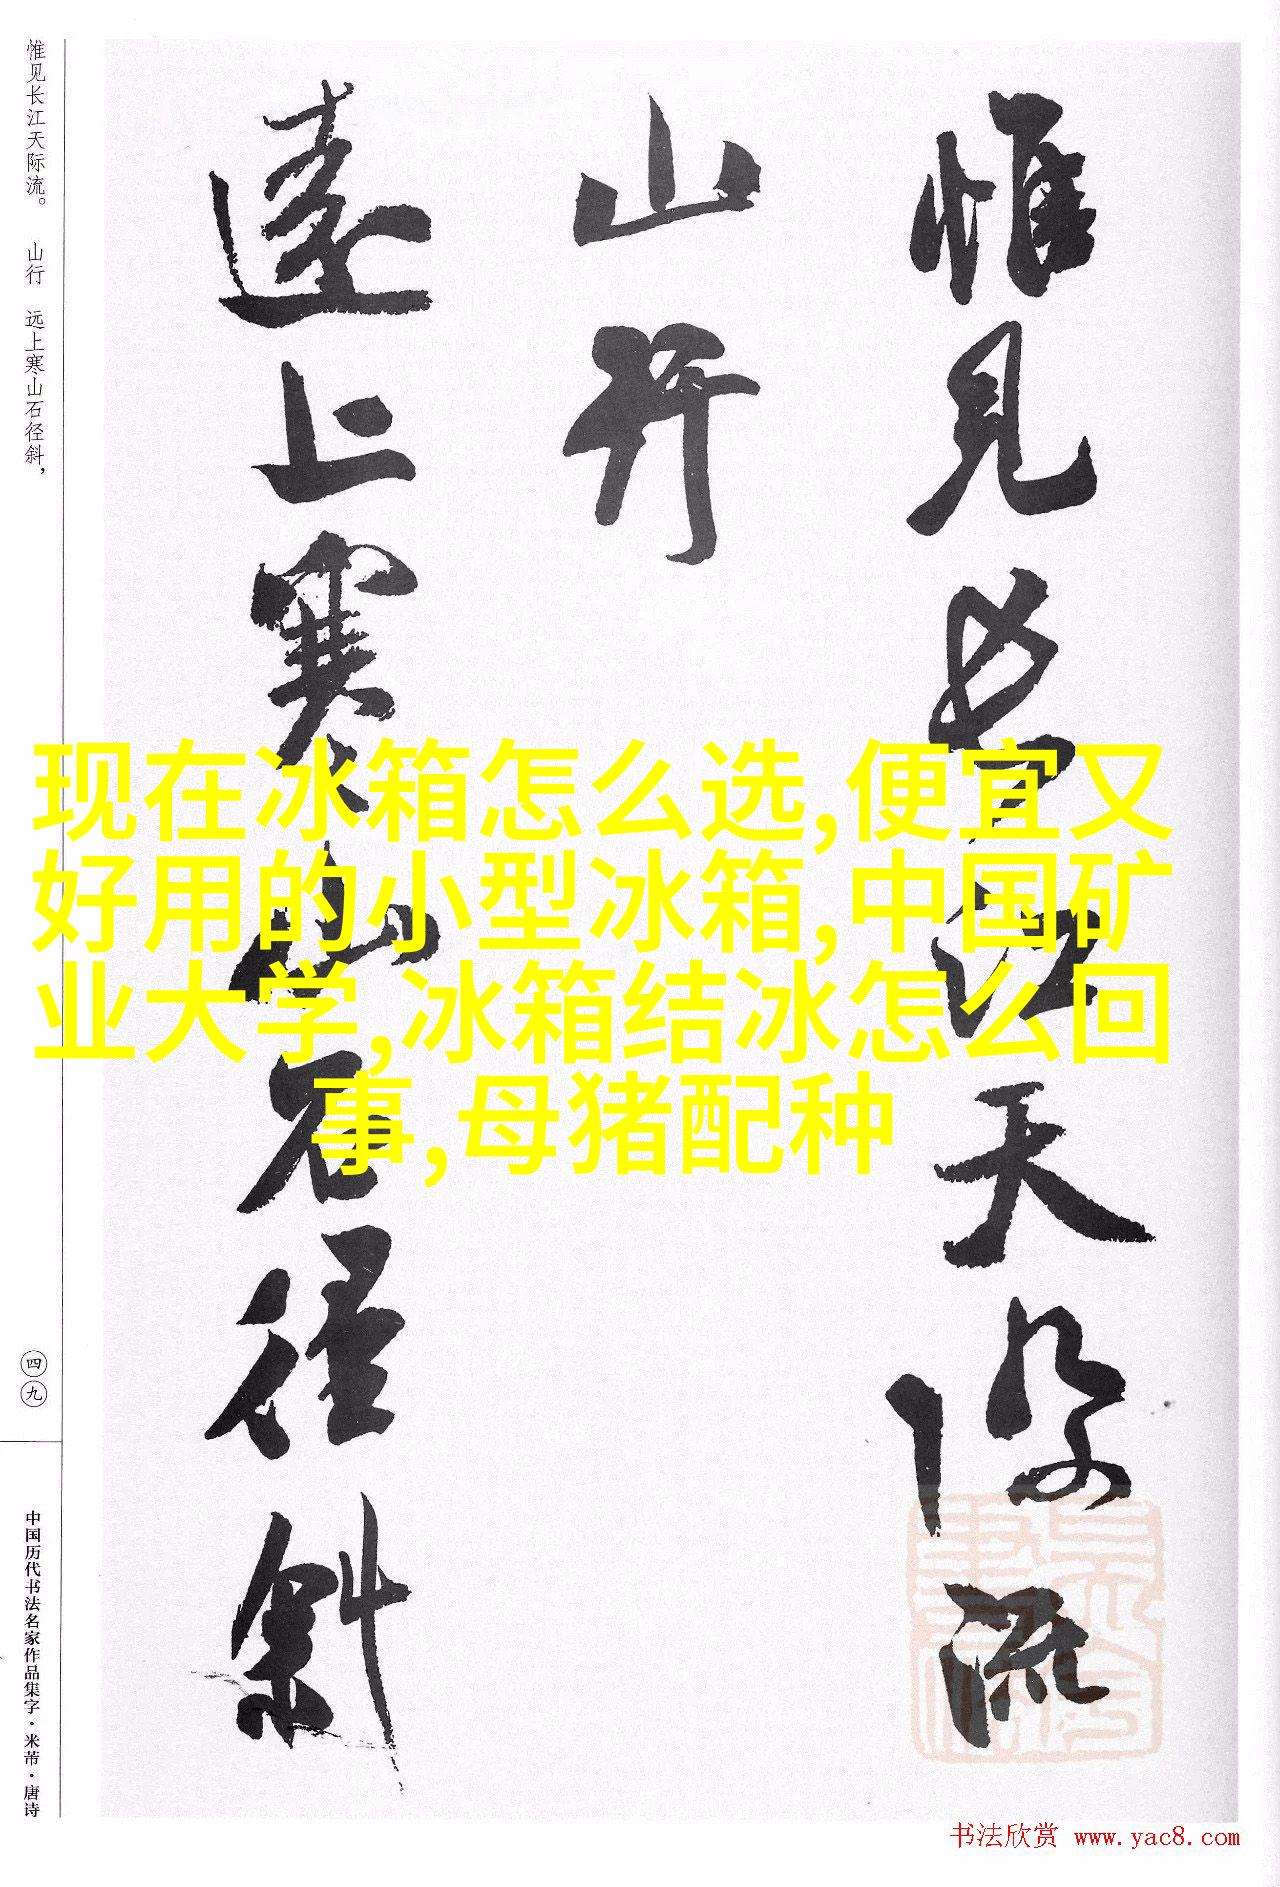 惟见长江天际流。 山行 远上寒山石径斜，
惟见长江天际流
山行
远上寒山石径斜
现在冰箱怎么选,便宜又
好用的小型冰箱,中国矿
业大学,冰箱结冰怎么回
事,母猪配种
四九
中国历代书法名家作品集字·米芾·唐诗
书法欣赏 www.yac8.com